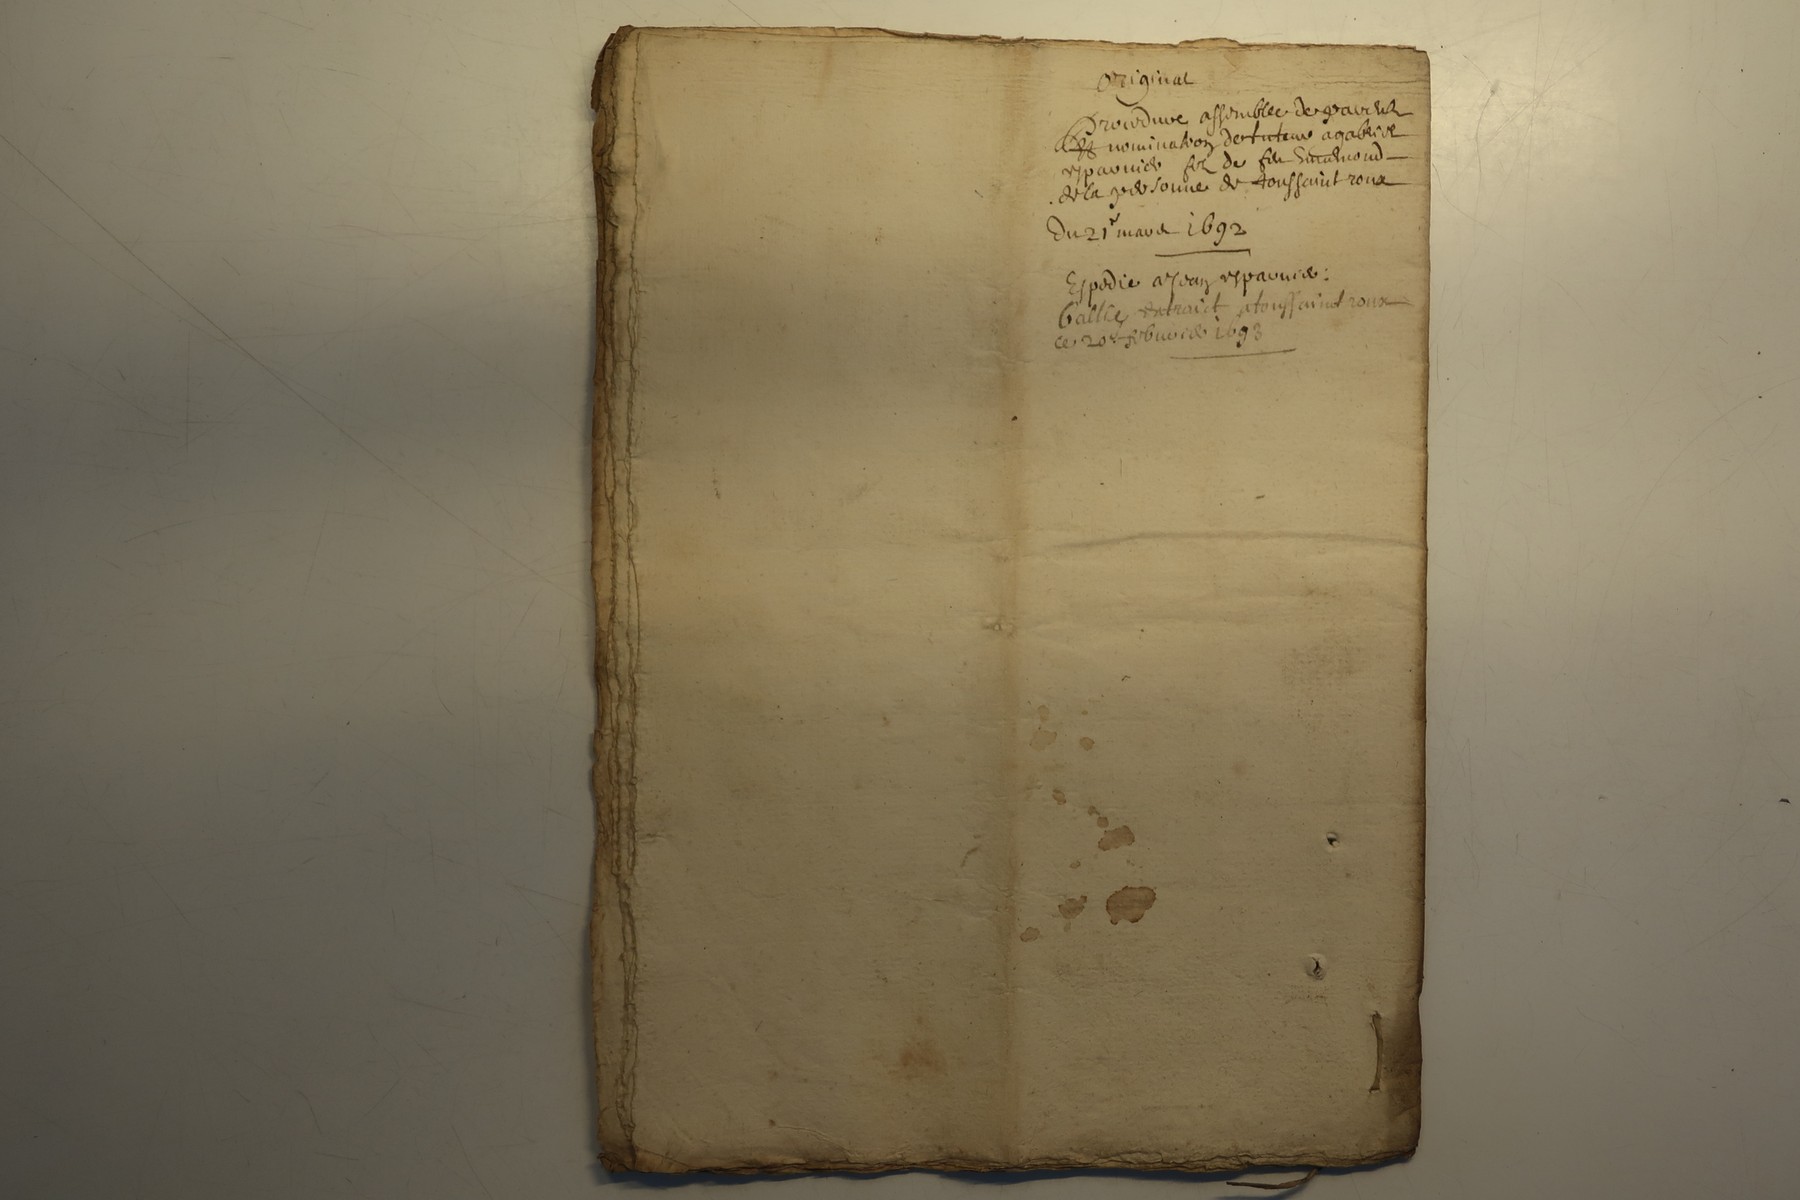 Original
Procedure assemblee de parents
nomination de tuteur a gabriel
esparnier fil de feu
de la personne de toussaint roux
Du 21e mars 1692
Expedie a Jean esparnier:
balhe extraict a toussainct roux
ce 20e febvrier 1693